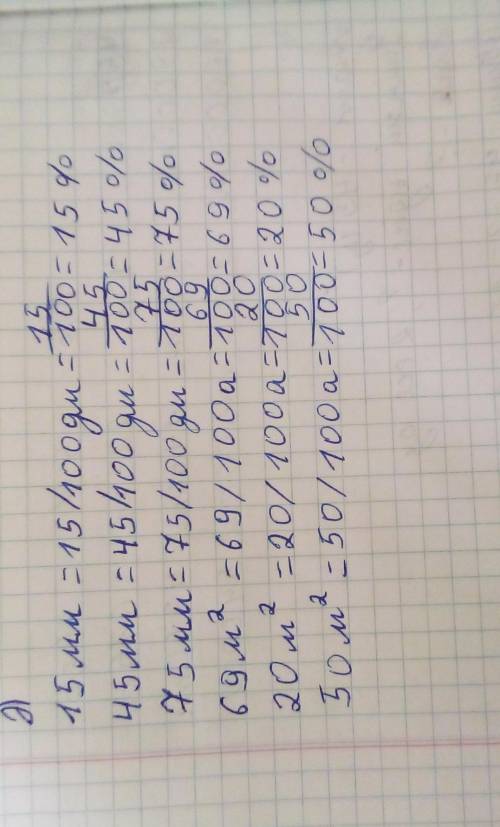 а)
15мм = 15/100дм = 15/100 = 15%
45мм = 45/100дм = 45/100 = 45%
75мм = 75/100дм = 75/100 = 75%
69м² = 69/100а = 69/100 = 69%
20м² = 20/100а = 20/100 = 20%
50м² = 50/100а = 50/100 = 50%